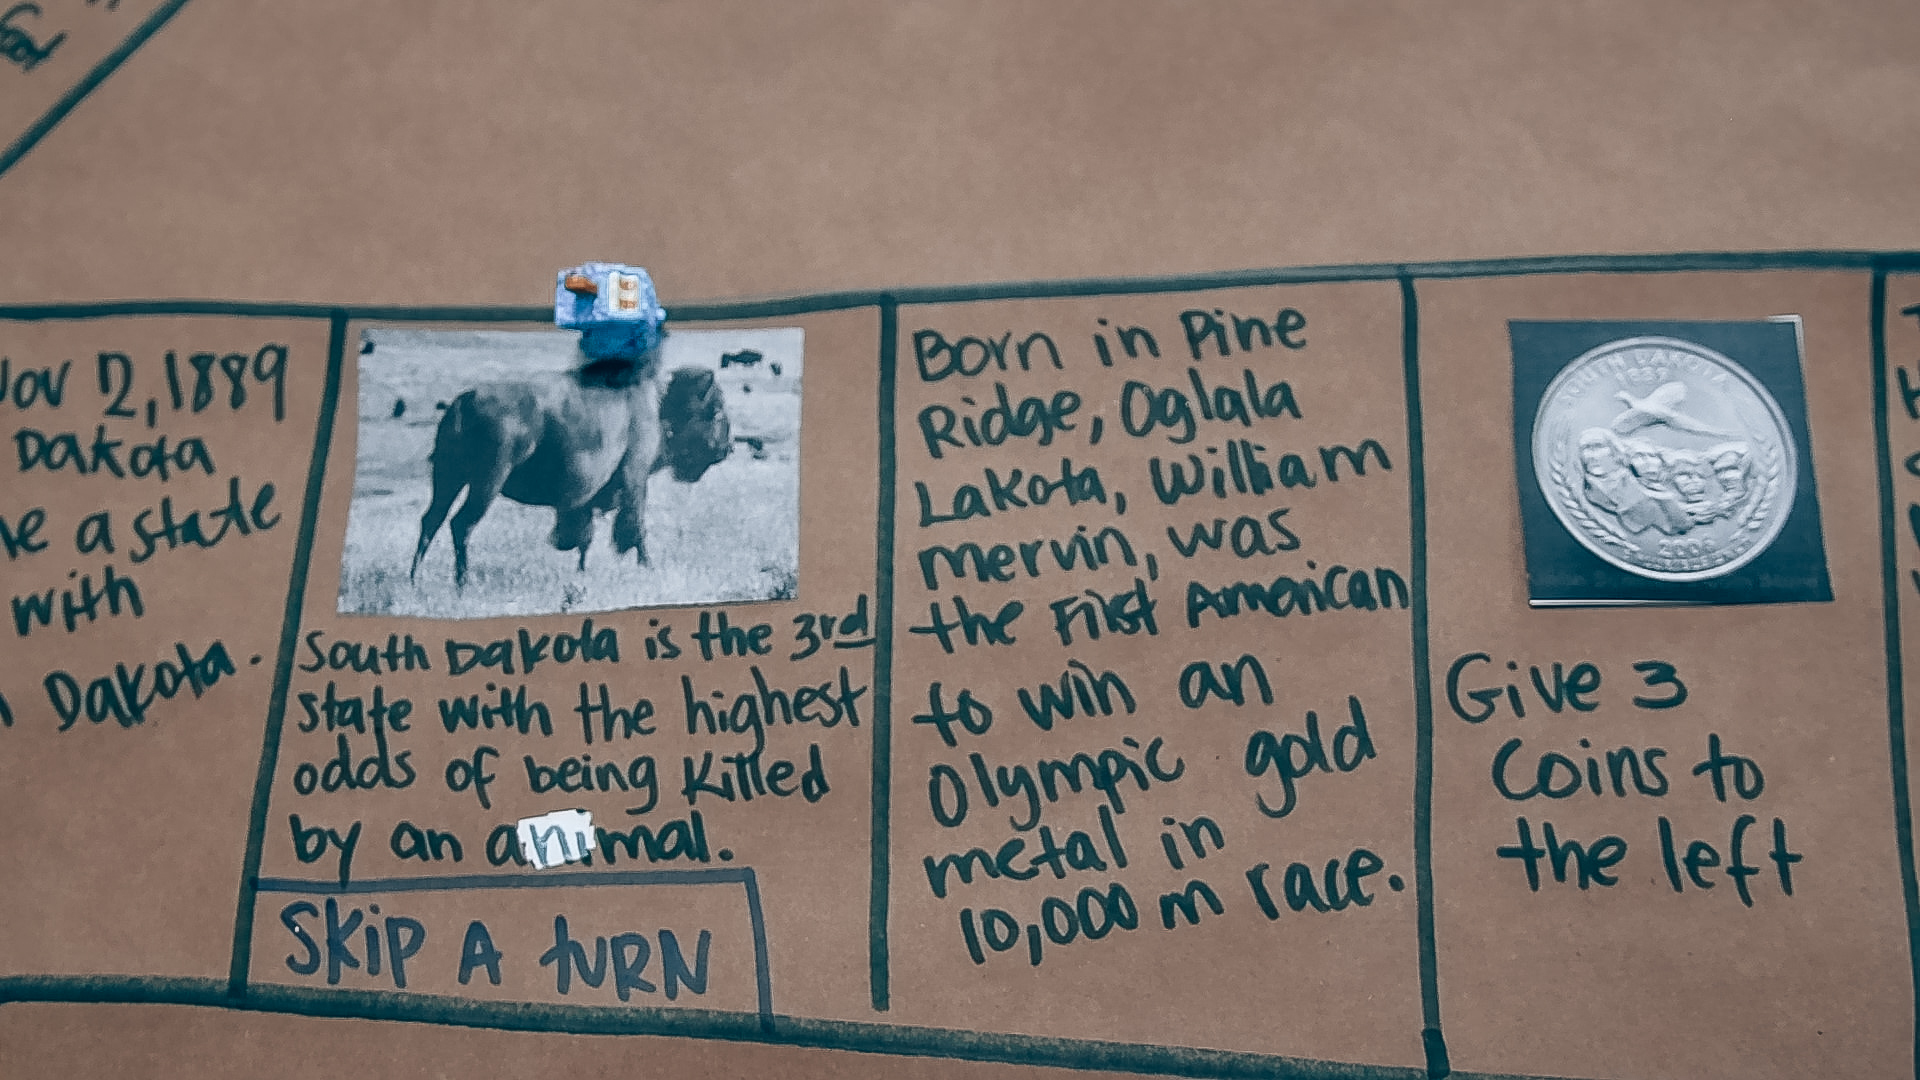 Nov 2, 1889
Dakota
a state
with
Dakota.
South Dakota is the 3rd
state with the highest
odds of being Killed
by an animal.
SKIP A TURN
Born in Pine
Ridge, Oglala
Lakota, William
mervin, was
the First American
to win an
Olympic gold
metal in
10,000 m race.
SOUTH DAKOTA
1889
2006
Give 3
Coins to
the left